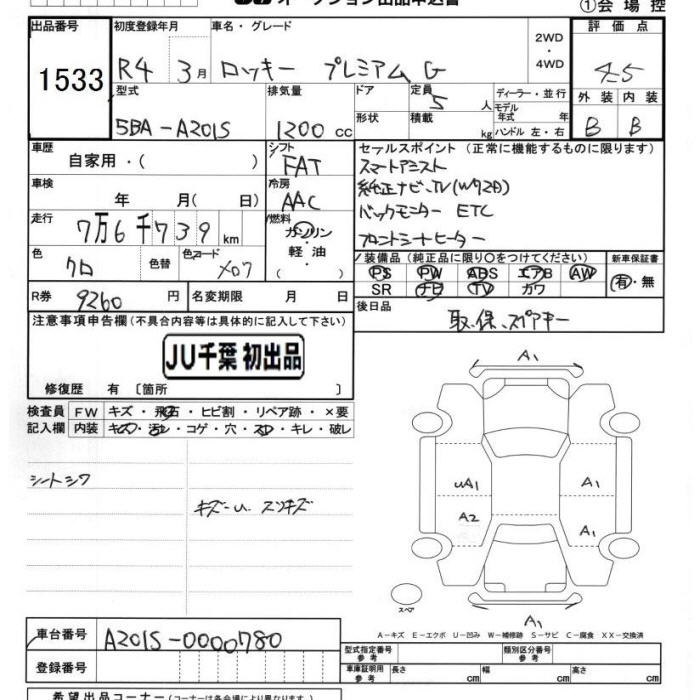 オークション出品申込書 ①会場控
出品番号 初度登録年月 車名・グレード 2WD・4WD 評価点
1533 R4 3月 ロッキー プレミアム G 4.5
型式 排気量 ドア 定員 5 人 ディーラー・並行 外装 内装
5BA-A201S 1200 cc 形状 積載 kg モデル年式 年 ハンドル 左・右 B B
車歴 自家用・( ) シフト FAT セールスポイント (正常に機能するものに限ります)
車検 年 月( 日) 冷房 AAC スマートアシスト
純正ナビ、TV(W92B)
走行 7万6千739 km 燃料 ガソリン バックモニター ETC
軽油 フロントシートヒーター
色 クロ 色替 色コード X07 装備品 (純正品に限り○をつけてください) 新車保証書
PS PW ABS エアB AW 有・無
R券 9260 円 名変期限 月 日 SR ナビ TV カワ
注意事項申告欄 (不具合内容等は具体的に記入して下さい) 後日品 取、保、スペアキー
JU千葉 初出品
修復歴 有 〔箇所 〕
検査員 FW キズ・飛石・ヒビ割・リペア跡・×要
記入欄 内装 キズ・汚レ・コゲ・穴・スレ・キレ・破レ
シートシワ
キズ-U、スリキズ
A1
UA1 A1
A2 A1
スペア
A1
A-キズ E-エクボ U-凹み W-補修跡 S-サビ C-腐食 XX-交換済
車台番号 A201S-0000780 型式指定番号 参考 類別区分番号 参考
登録番号 車庫証明用 参考 長さ cm 幅 cm 高さ cm
希望出品コーナー (内容は各会場により異なります。)